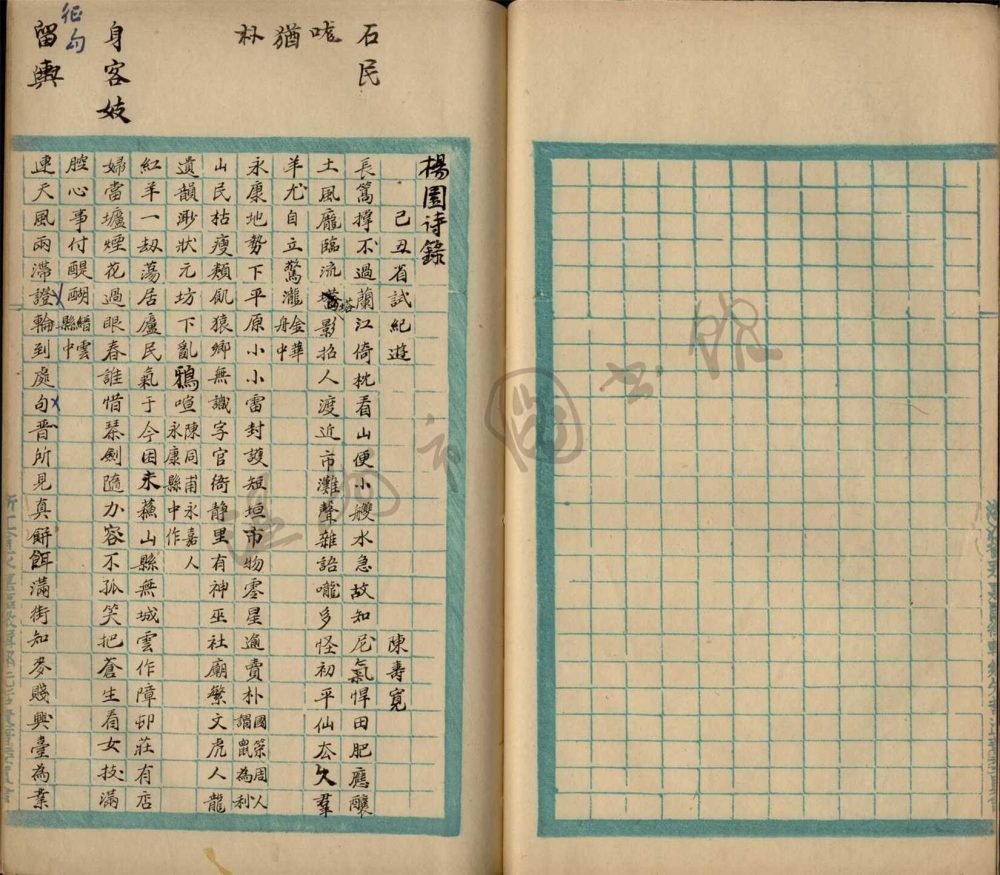 石民
咙
猶
朴
身客妓
征勾
留輿
楊園诗錄
己丑省試紀遊 陳壽寬
長篙撐不過蘭江倚枕看山便小艭水急故知尼氣悍田肥應釀
土風龐臨流塔影招人渡近市灘聲雜語嚨多怪初平仙去久羣
羊尤自立驚瀧金華舟中
永康地勢下平原小小雷封護短垣市物零星逾賣朴國策周人謂鼠為利
山民枯瘦類飢猿鄉無識字官衙静里有神巫社廟繁文虎人龍
遺韻渺狀元坊下亂鴉喧陳同甫永嘉人永康縣中作
紅羊一劫蕩居廬民氣于今困未蘓山縣無城雲作障邨莊有店
婦當壚煙花過眼春誰惜琴劍隨力容不孤笑把蒼生看女技滿
腔心事付醍醐縉雲縣中
連天風雨滯證輪到處句晋所見真餅餌滿街知麥賤興臺為業